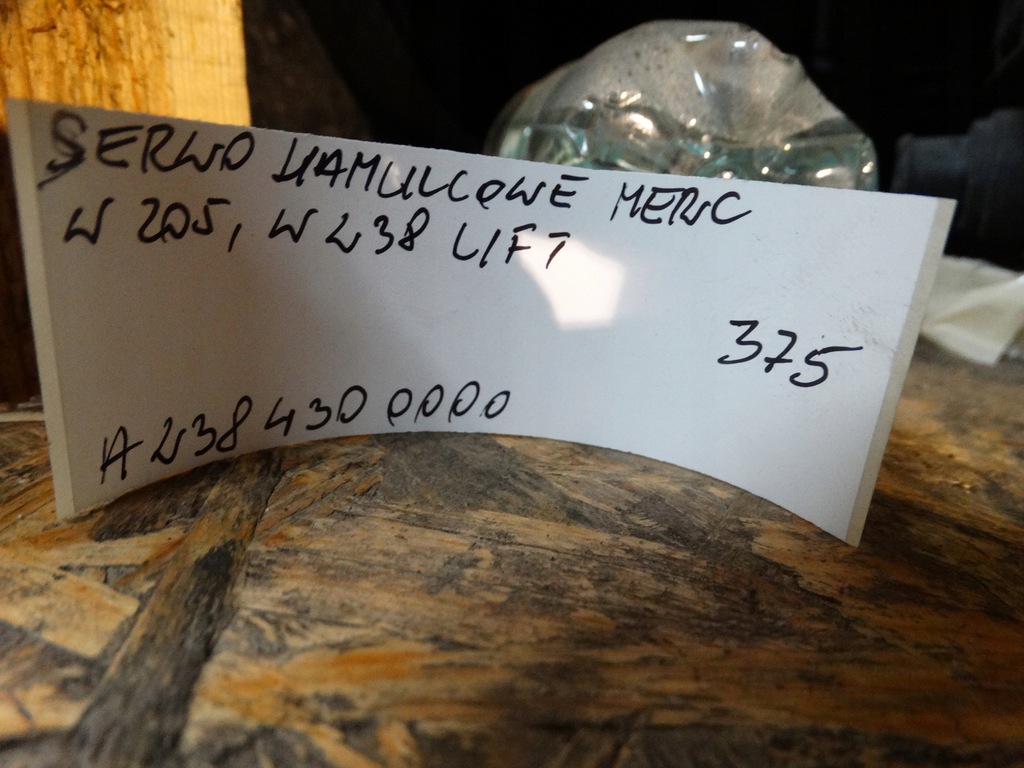 SERWO HAMULCOWE MERC
W 205, W 238 LIFT
375
A 238 430 0000